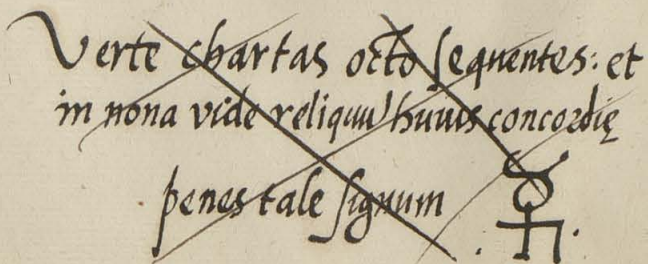 Verte chartas octo sequentes: et
in nona vide reliquũ huius concordię
penes tale signum